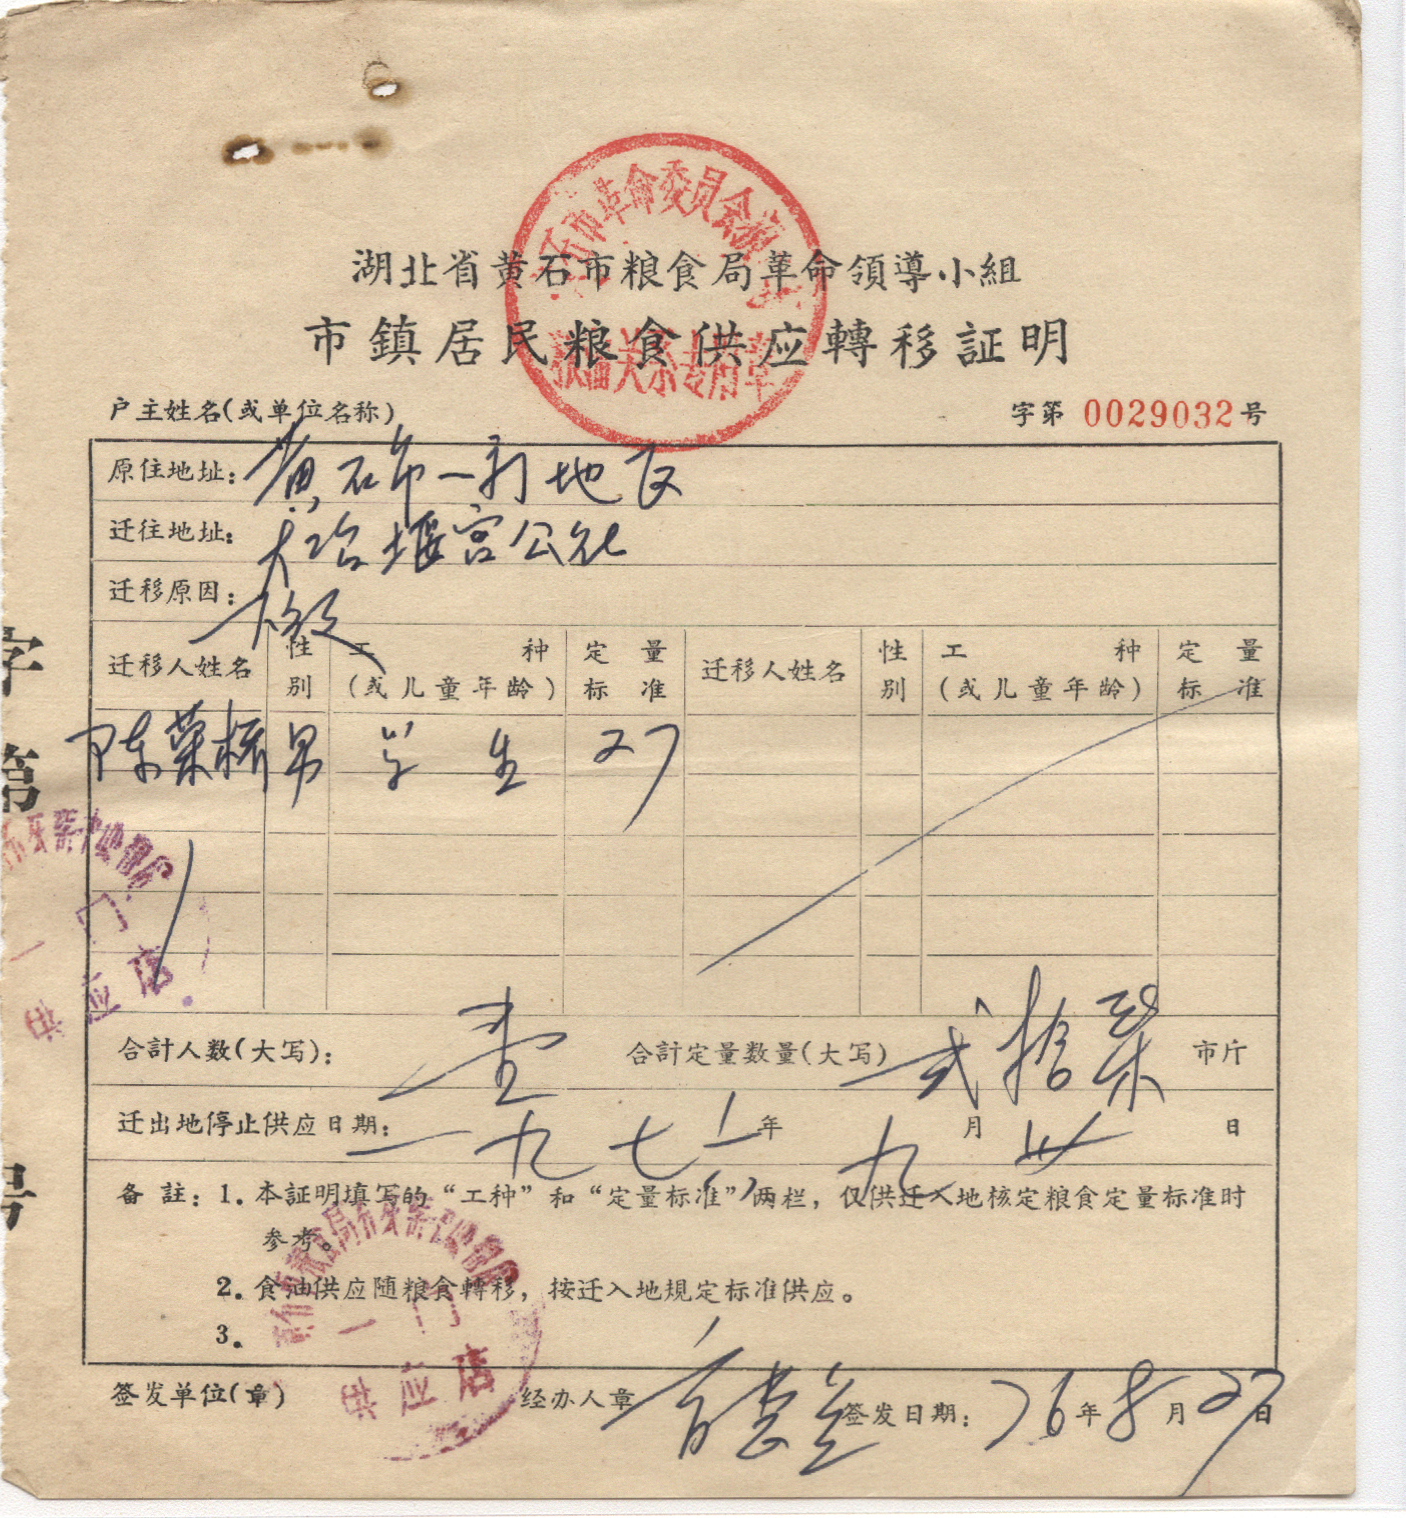 市革命委員会
粮油关系专用章
湖北省黄石市粮食局革命領导小組
市鎮居民粮食供应轉移証明
户主姓名(或单位名称)
字第 0029032 号
原住地址: 黄石市一门地区
迁往地址: 大冶堰宫公社
迁移原因:
迁移人姓名 性别 工种(或儿童年龄) 定量标准 迁移人姓名 性别 工种(或儿童年龄) 定量标准
陈荣桥 男 学生 27
字第 号
一门
供应店
合計人数(大写): 壹 合計定量数量(大写) 弍拾柒 市斤
迁出地停止供应日期: 一九七六年 九月 日
备註: 1. 本証明填写的“工种”和“定量标准”两栏, 仅供迁入地核定粮食定量标准时
参考。
2. 食油供应随粮食轉移, 按迁入地規定标准供应。
3.
一门
供应店
签发单位(章) 经办人章 签发日期: 76年8月27日